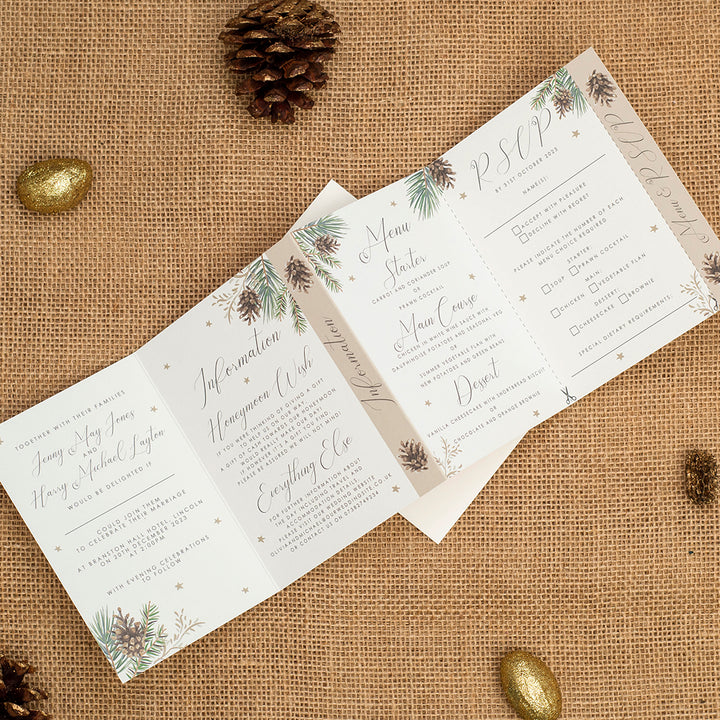 TOGETHER WITH THEIR FAMILIES
Jenny May Jones
AND
Harry Michael Layton
WOULD BE DELIGHTED IF
COULD JOIN THEM
TO CELEBRATE THEIR MARRIAGE
AT BRANSTON HALL HOTEL, LINCOLN
ON 30TH DECEMBER 2023
AT 2:00PM
WITH EVENING CELEBRATIONS
TO FOLLOW
Information
Honeymoon Wish
IF YOU WERE THINKING OF GIVING A GIFT
TO HELP US ON OUR WAY
A GIFT OF CASH TOWARDS OUR HONEYMOON
WOULD REALLY MAKE OUR DAY
PLEASE BE ASSURED WE WILL NOT MIND!
Everything Else
FOR FURTHER INFORMATION ABOUT
THE DAY INCLUDING TRAVEL AND
ACCOMMODATION DETAILS
PLEASE VISIT OUR WEDDING WEBSITE
OR CONTACT US ON 01522787234
Information
Menu
Starter
CARROT AND CORIANDER SOUP
OR
PRAWN COCKTAIL
Main Course
CHICKEN IN WHITE WINE SAUCE WITH
DAUPHINOISE POTATOES AND SEASONAL VEG
OR
SUMMER VEGETABLE FLAN WITH
NEW POTATOES AND GREEN BEANS
Dessert
VANILLA CHEESECAKE WITH SHORTBREAD BISCUIT
OR
CHOCOLATE AND ORANGE BROWNIE
RSVP
BY 31ST OCTOBER 2023
NAME(S):
ACCEPT WITH PLEASURE
DECLINE WITH REGRET
PLEASE INDICATE THE NUMBER OF EACH
MENU CHOICE REQUIRED
STARTER:
SOUP PRAWN COCKTAIL
MAIN:
CHICKEN VEGETABLE FLAN
DESSERT:
CHEESECAKE BROWNIE
SPECIAL DIETARY REQUIREMENTS:
Menu & RSVP